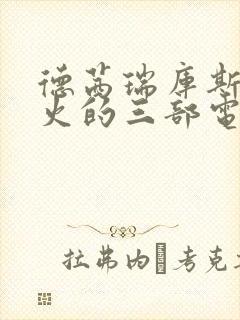 德茜瑞庫斯
火的三部電
拉弗內·考克